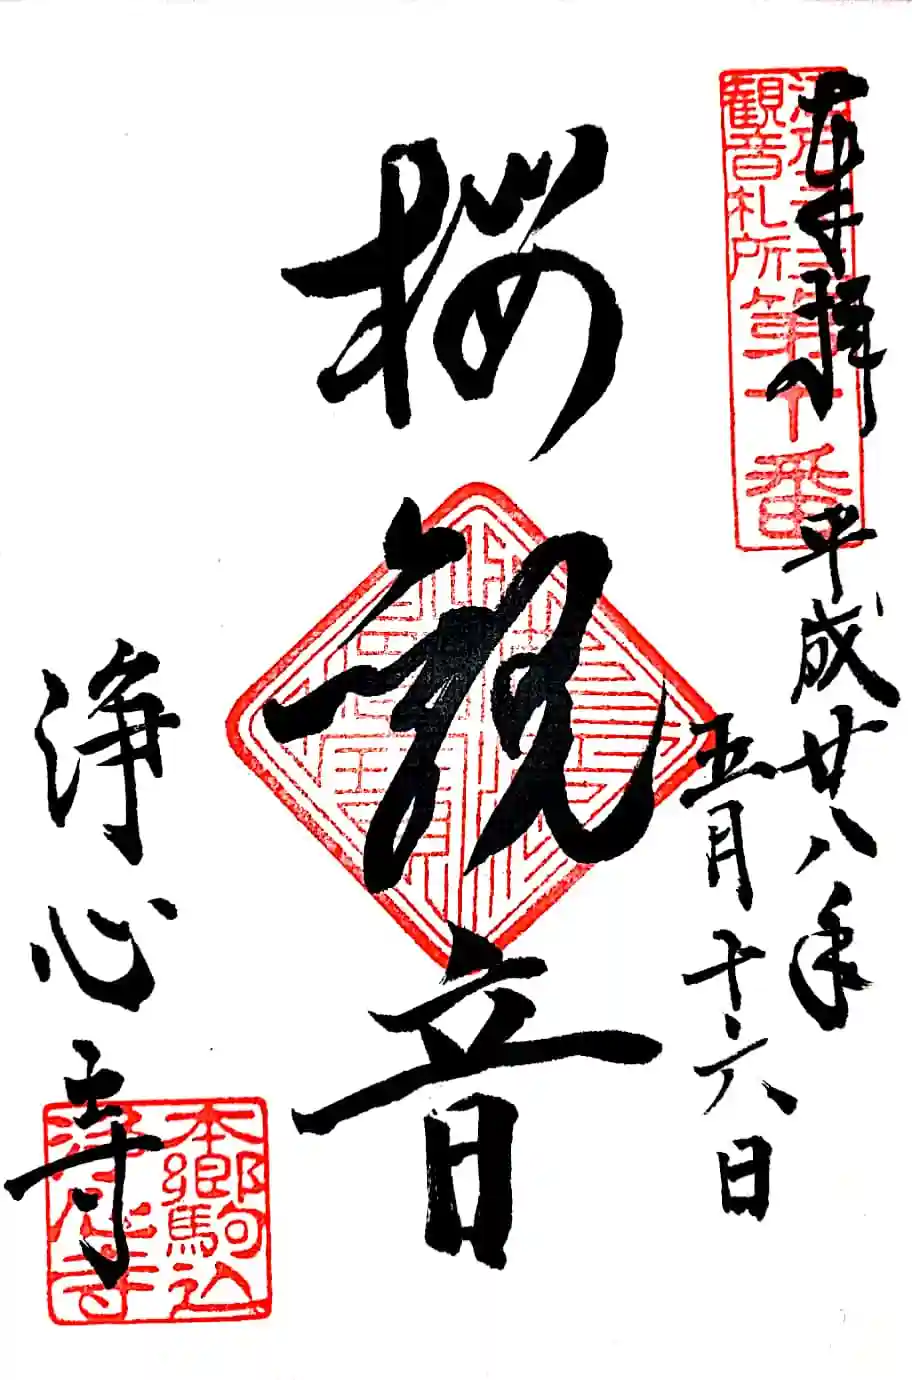 奉拝
平成廿八年
五月十六日
江戸三十三
観音札所
第十番
桜観音
浄心寺
本郷駒込
浄心寺